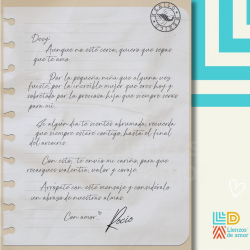 Doug:
Aunque no esté cerca, quiero que sepas
que te amo.
Por la pequeña niña que alguna vez
fuiste, por la increíble mujer que eres hoy y
sobretodo por la preciosa hija que siempre serás
para mí.
Si algún día te sientes abrumada, recuerda
que siempre estaré contigo, hasta el final
del arcoiris.
Con esta, te envío mi cariño, para que
recargues valentía, valor y coraje.
Arropate con este mensaje y considéralo
un abrazo de nuestras almas.
Con amor,
Rocío
LD
Lienzos
de amor